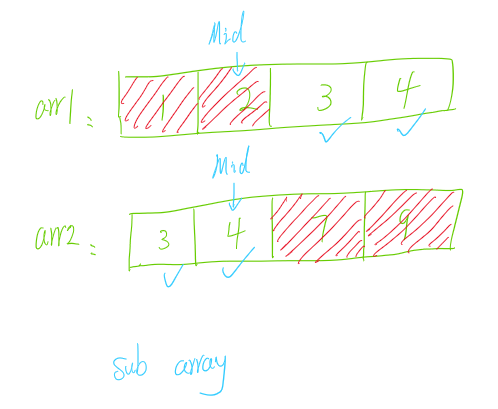 Mid
arr1 = 1 2 3 4
Mid
arr2 = 3 4 7 9
sub array